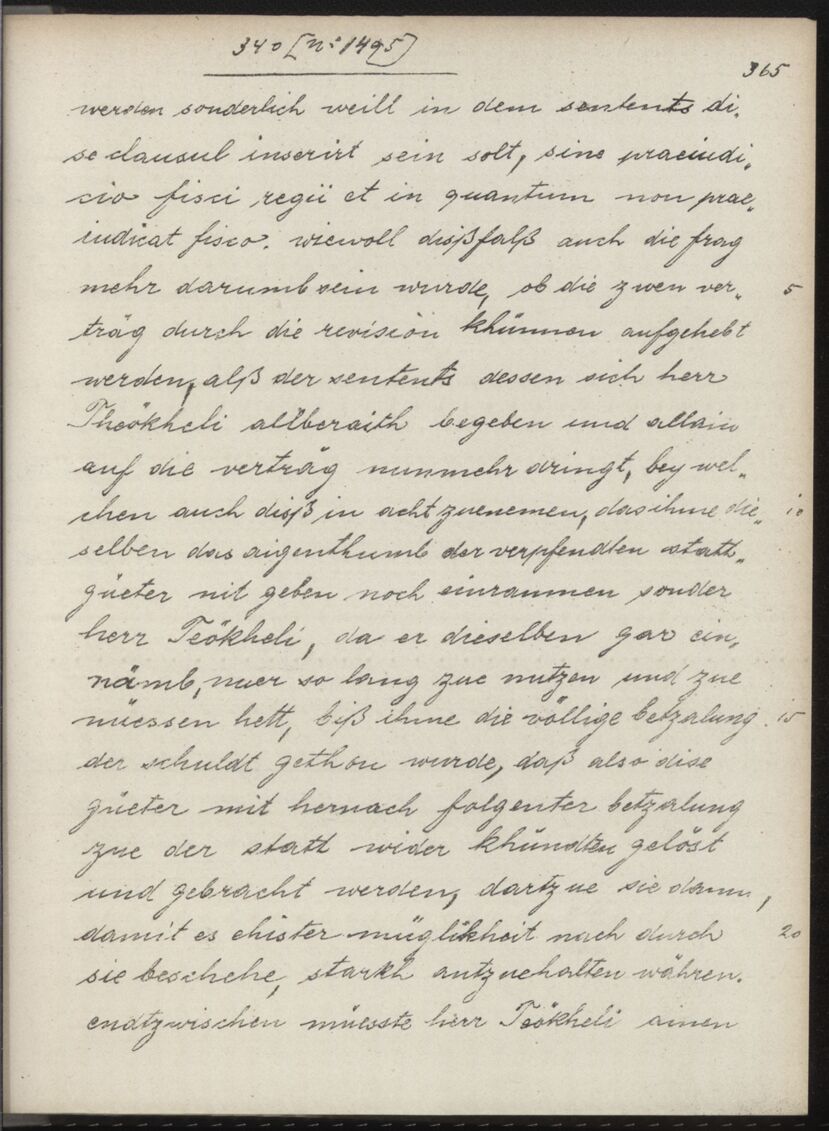 340 [No 1495]
365
werden sonderlich weill in dem sentents di„
se clausul inserirt sein solt, sine praeiudi„
cio fisci regii et in quantum non prae„
iudicat fisco. wiewoll dißfalß auch die frag
mehr darumb sein wurde, ob die zwen ver„ 5
träg durch die revision khünnen aufgehebt
werden, alß der sentents dessen sich herr
Theökheli alberaith begeben und allain
auf die verträg nunmehr dringt, bey wel„
chen auch diß in acht zuenemen, das ihme die„ 10
selben das aigenthumb der verpfendten statt„
güeter nit geben noch einraumen sonder
herr Teökheli, da er dieselben gar ein„
nämb, nuer so lang zue nutzen und zue
nüessen hett, biß ihme die völlige betzalung 15
der schuldt gethon wurde, daß also dise
güeter mit hernach folgenter betzalung
zue der statt wider khündten gelöst
und gebracht werden, dartzue sie dann,
damit es ehister müglikheit nach durch 20
sie beschehe, starkh antzuehalten währen.
endtzwischen müesste herr Teökheli ainen